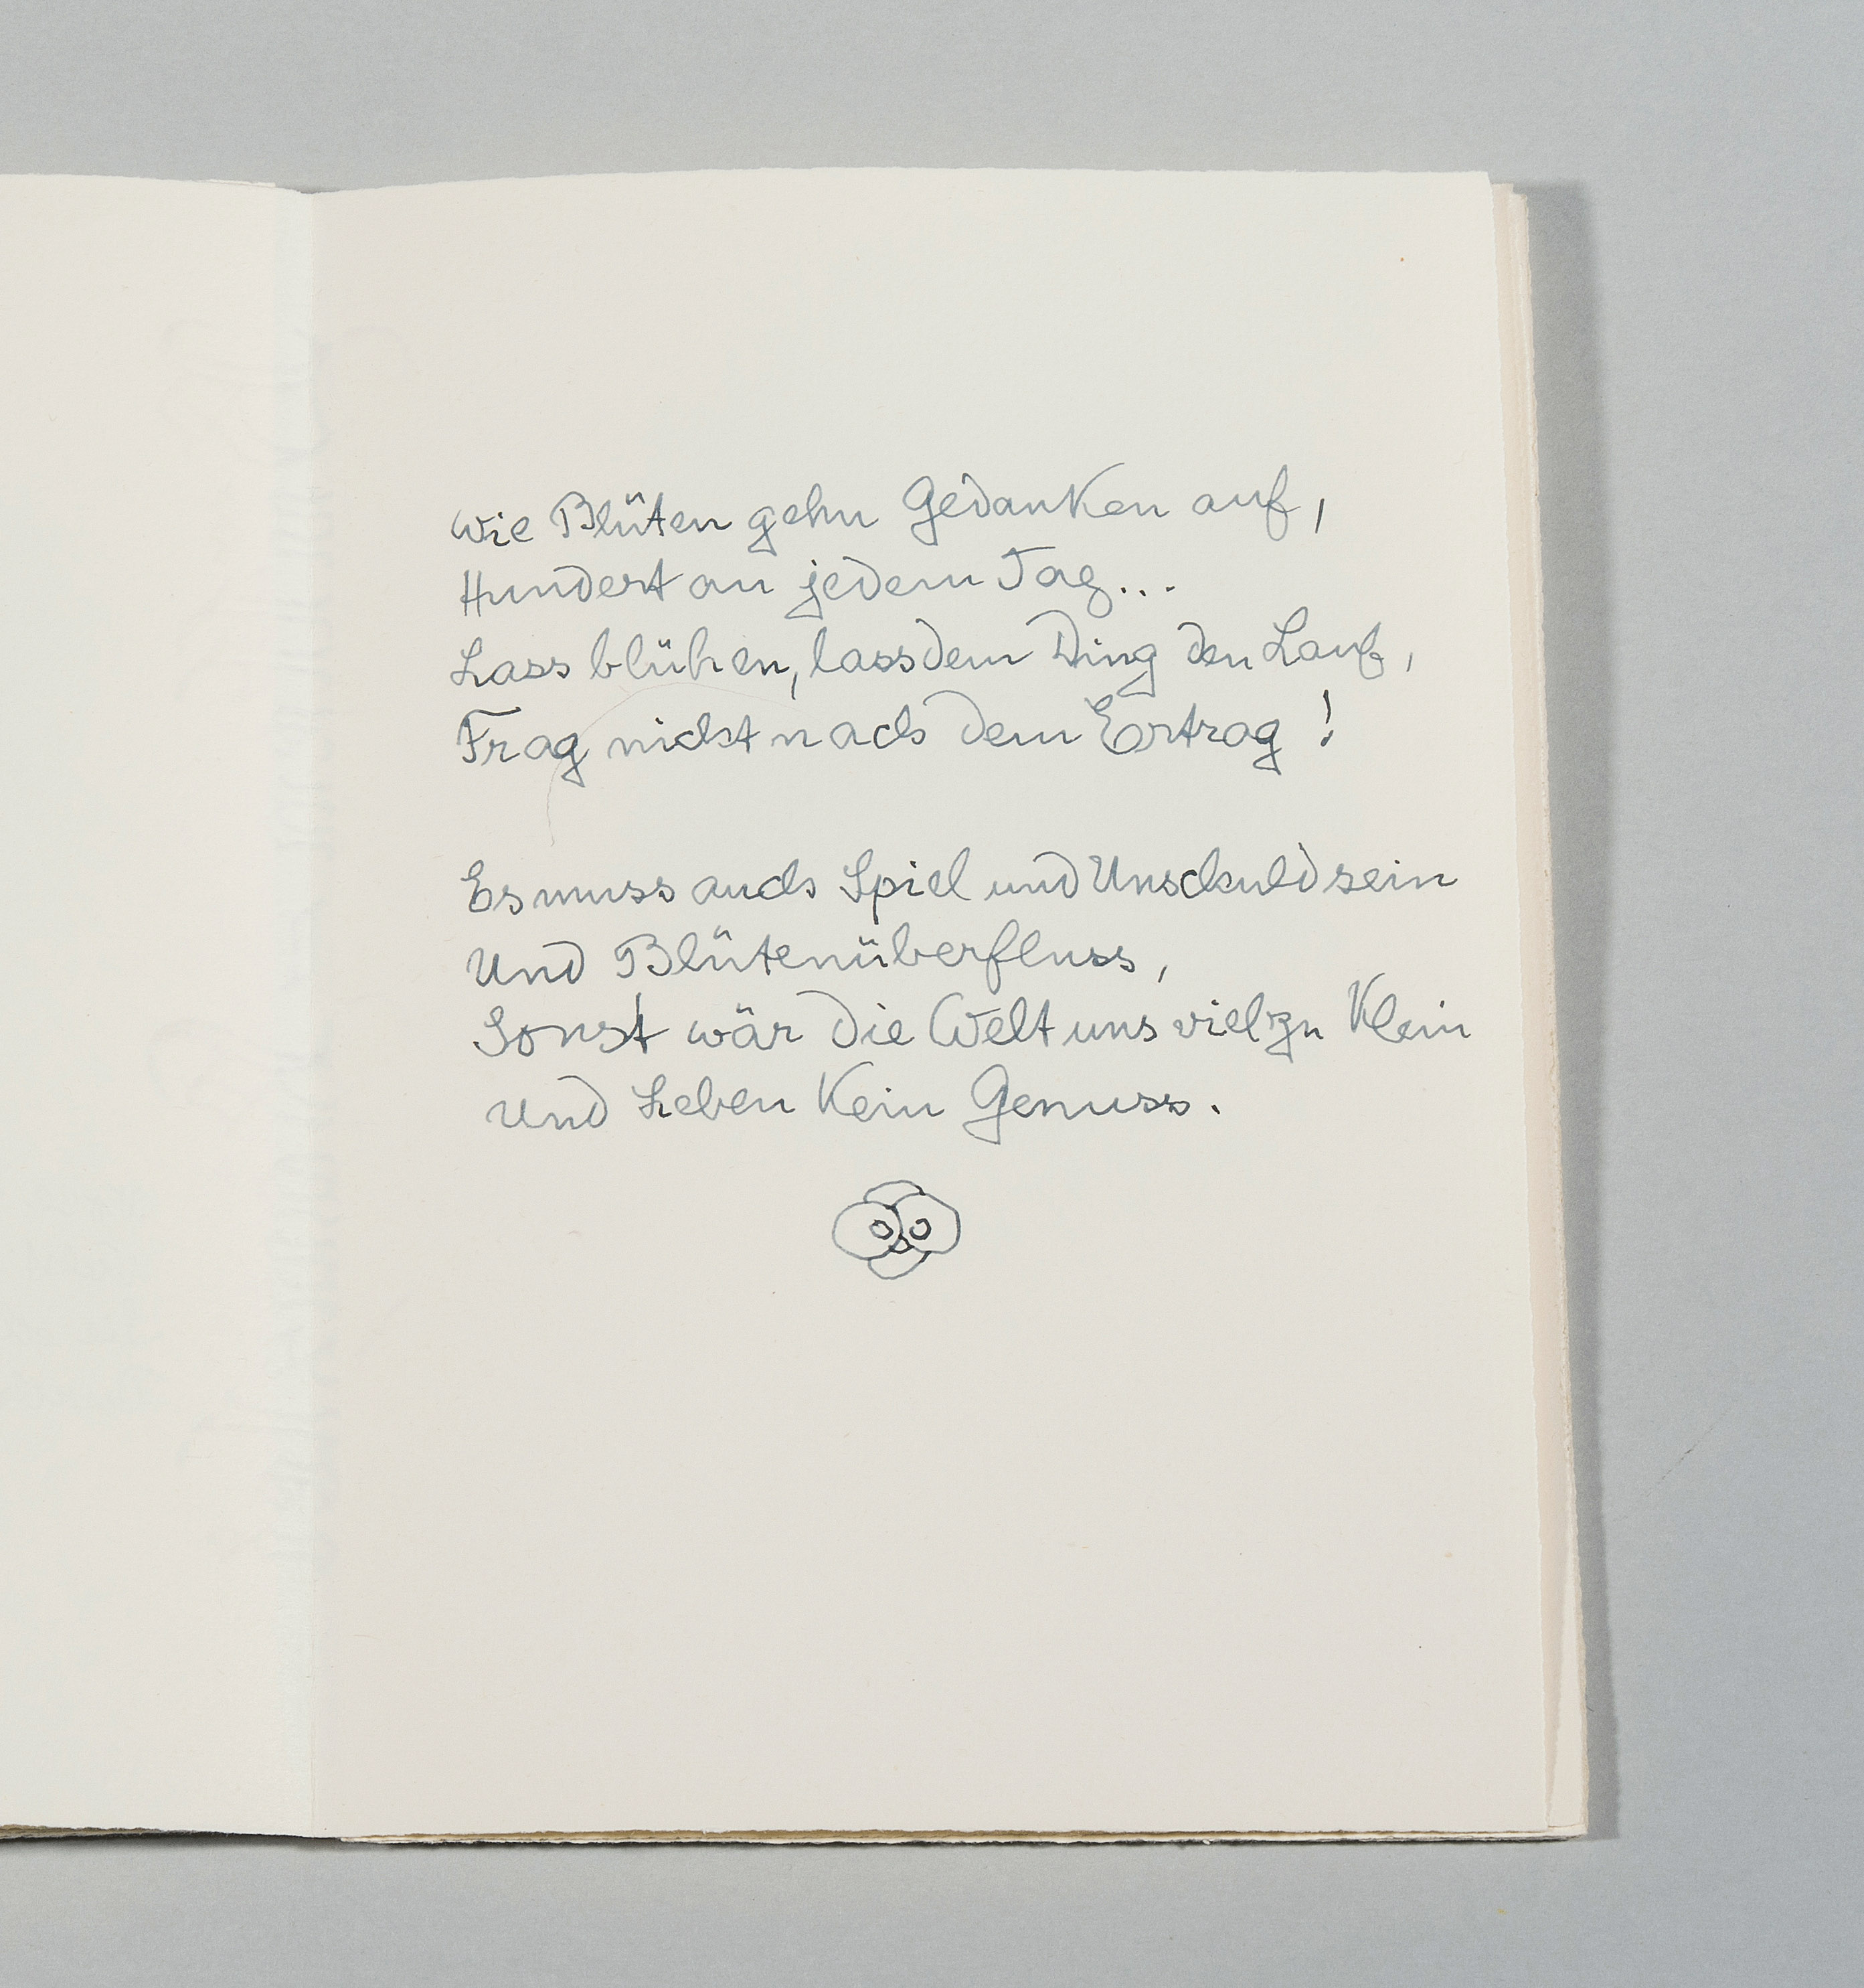 Wie Blüten gehn Gedanken auf,
Hundert an jedem Tag...
Lass blühen, lass dem Ding den Lauf,
Frag nicht nach dem Ertrag!
Es muss auch Spiel und Unschuld sein
Und Blütenüberfluss,
Sonst wär die Welt uns viel zu Klein
Und Leben Kein Genuss.